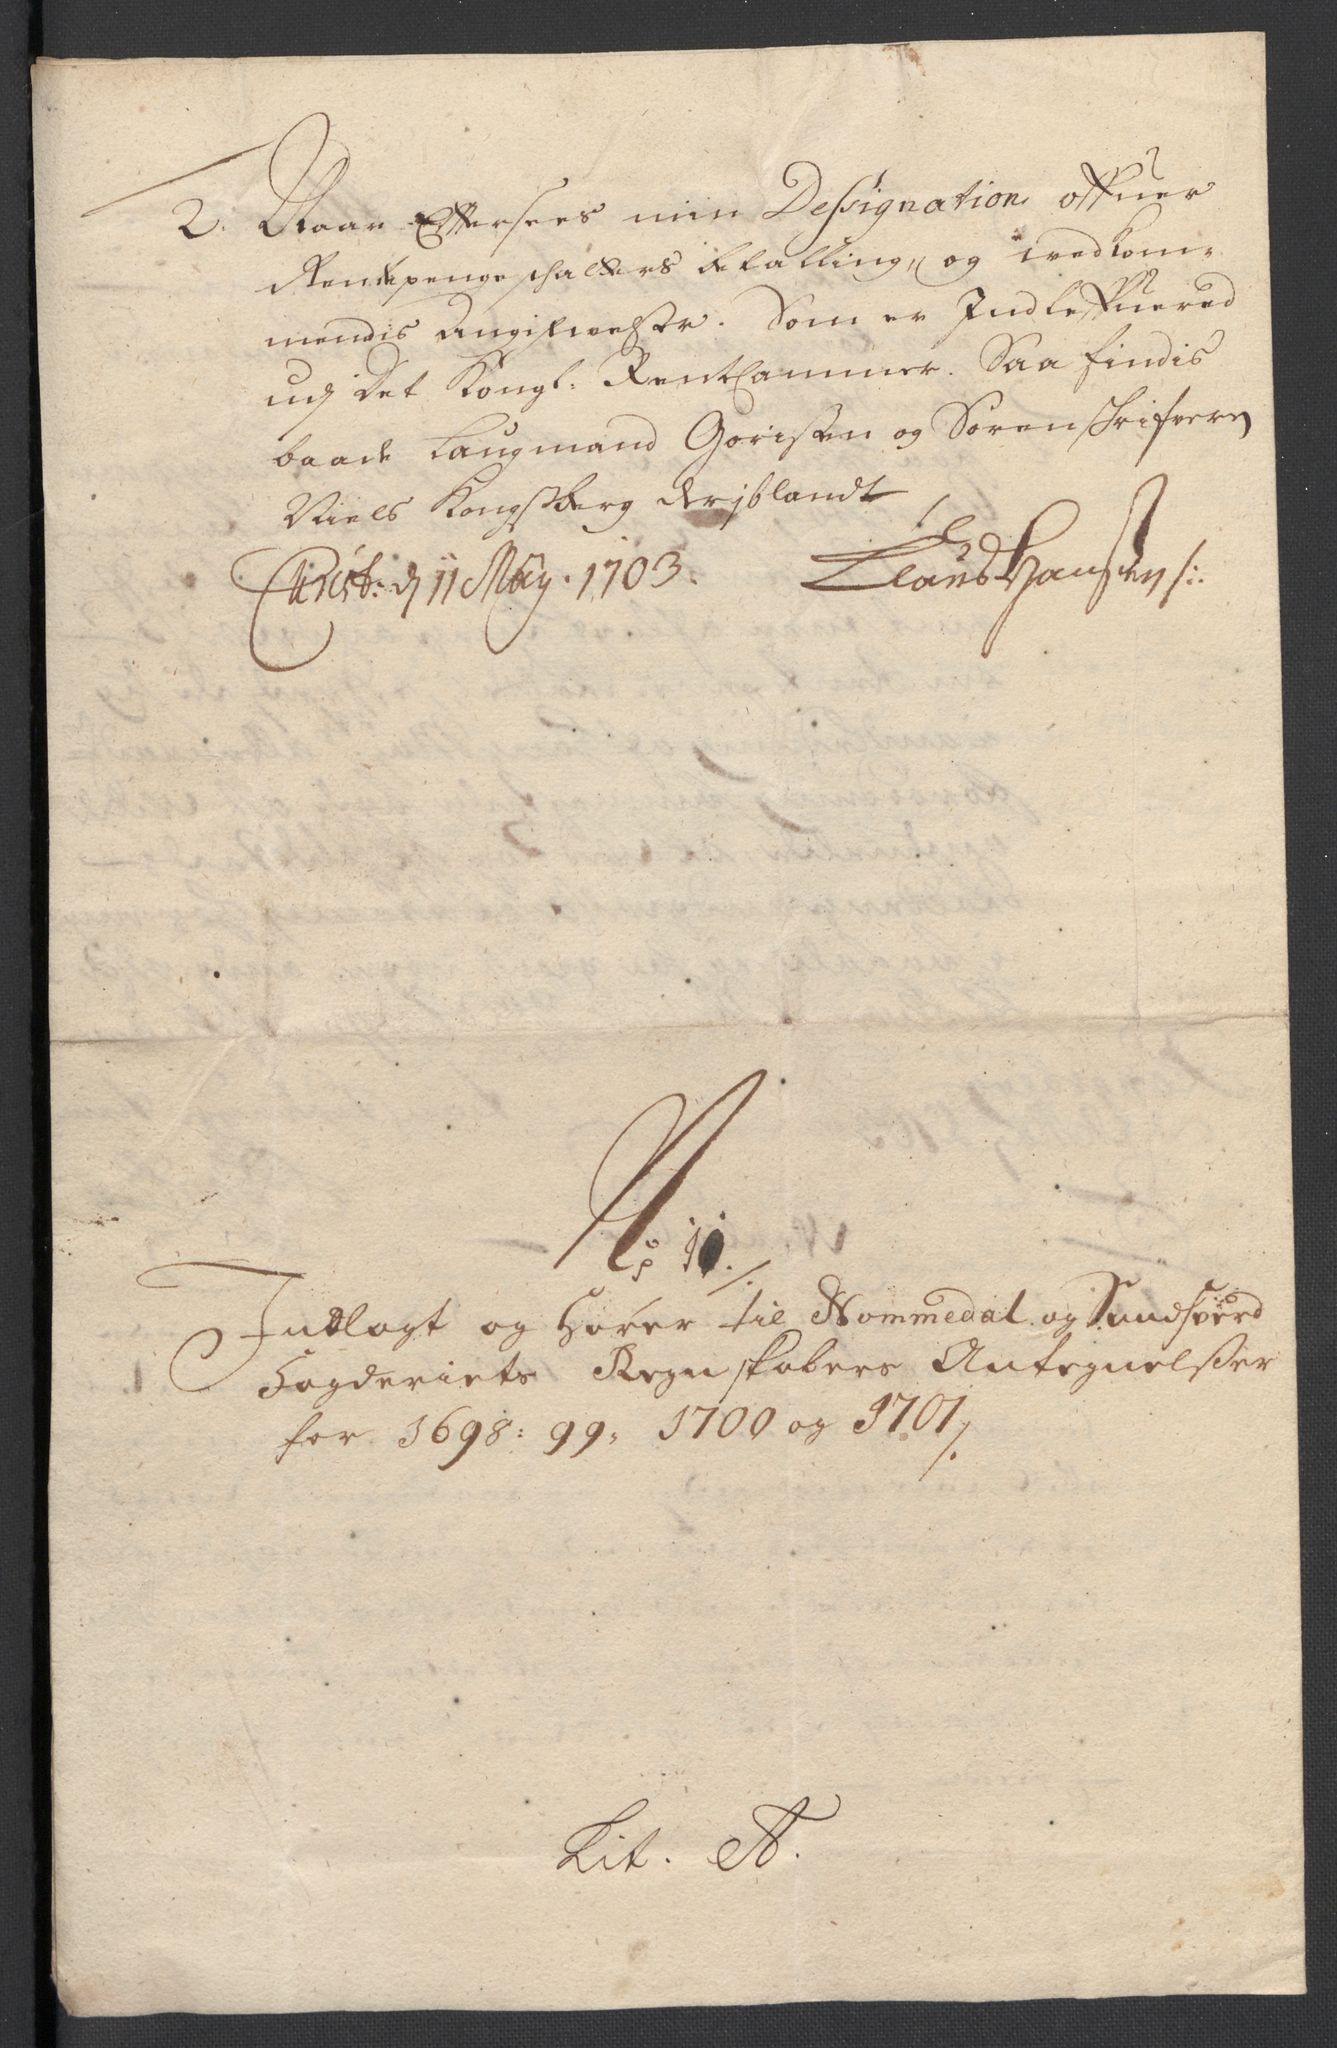 2. Naar Effersees min DesSignation offuer
Rentepenge schatters betalling, og wedkom-
mendis Angifvelser. Som er Indleffuered
udj Det Kongl: RentCammer. Saa findis
baade Laugmand Gorisen og Sorenschrifveren
Niels Kongsberg derjblandt
Christ: d 11 May. 1703. Claus Hansen/:.
No 10./.
Indlagt og Hører til Nommedal og Sandsverd
Fogderiets Regnskabers Antegnelser
for 1698: 99: 1700 og 1701/.
Lit. A.